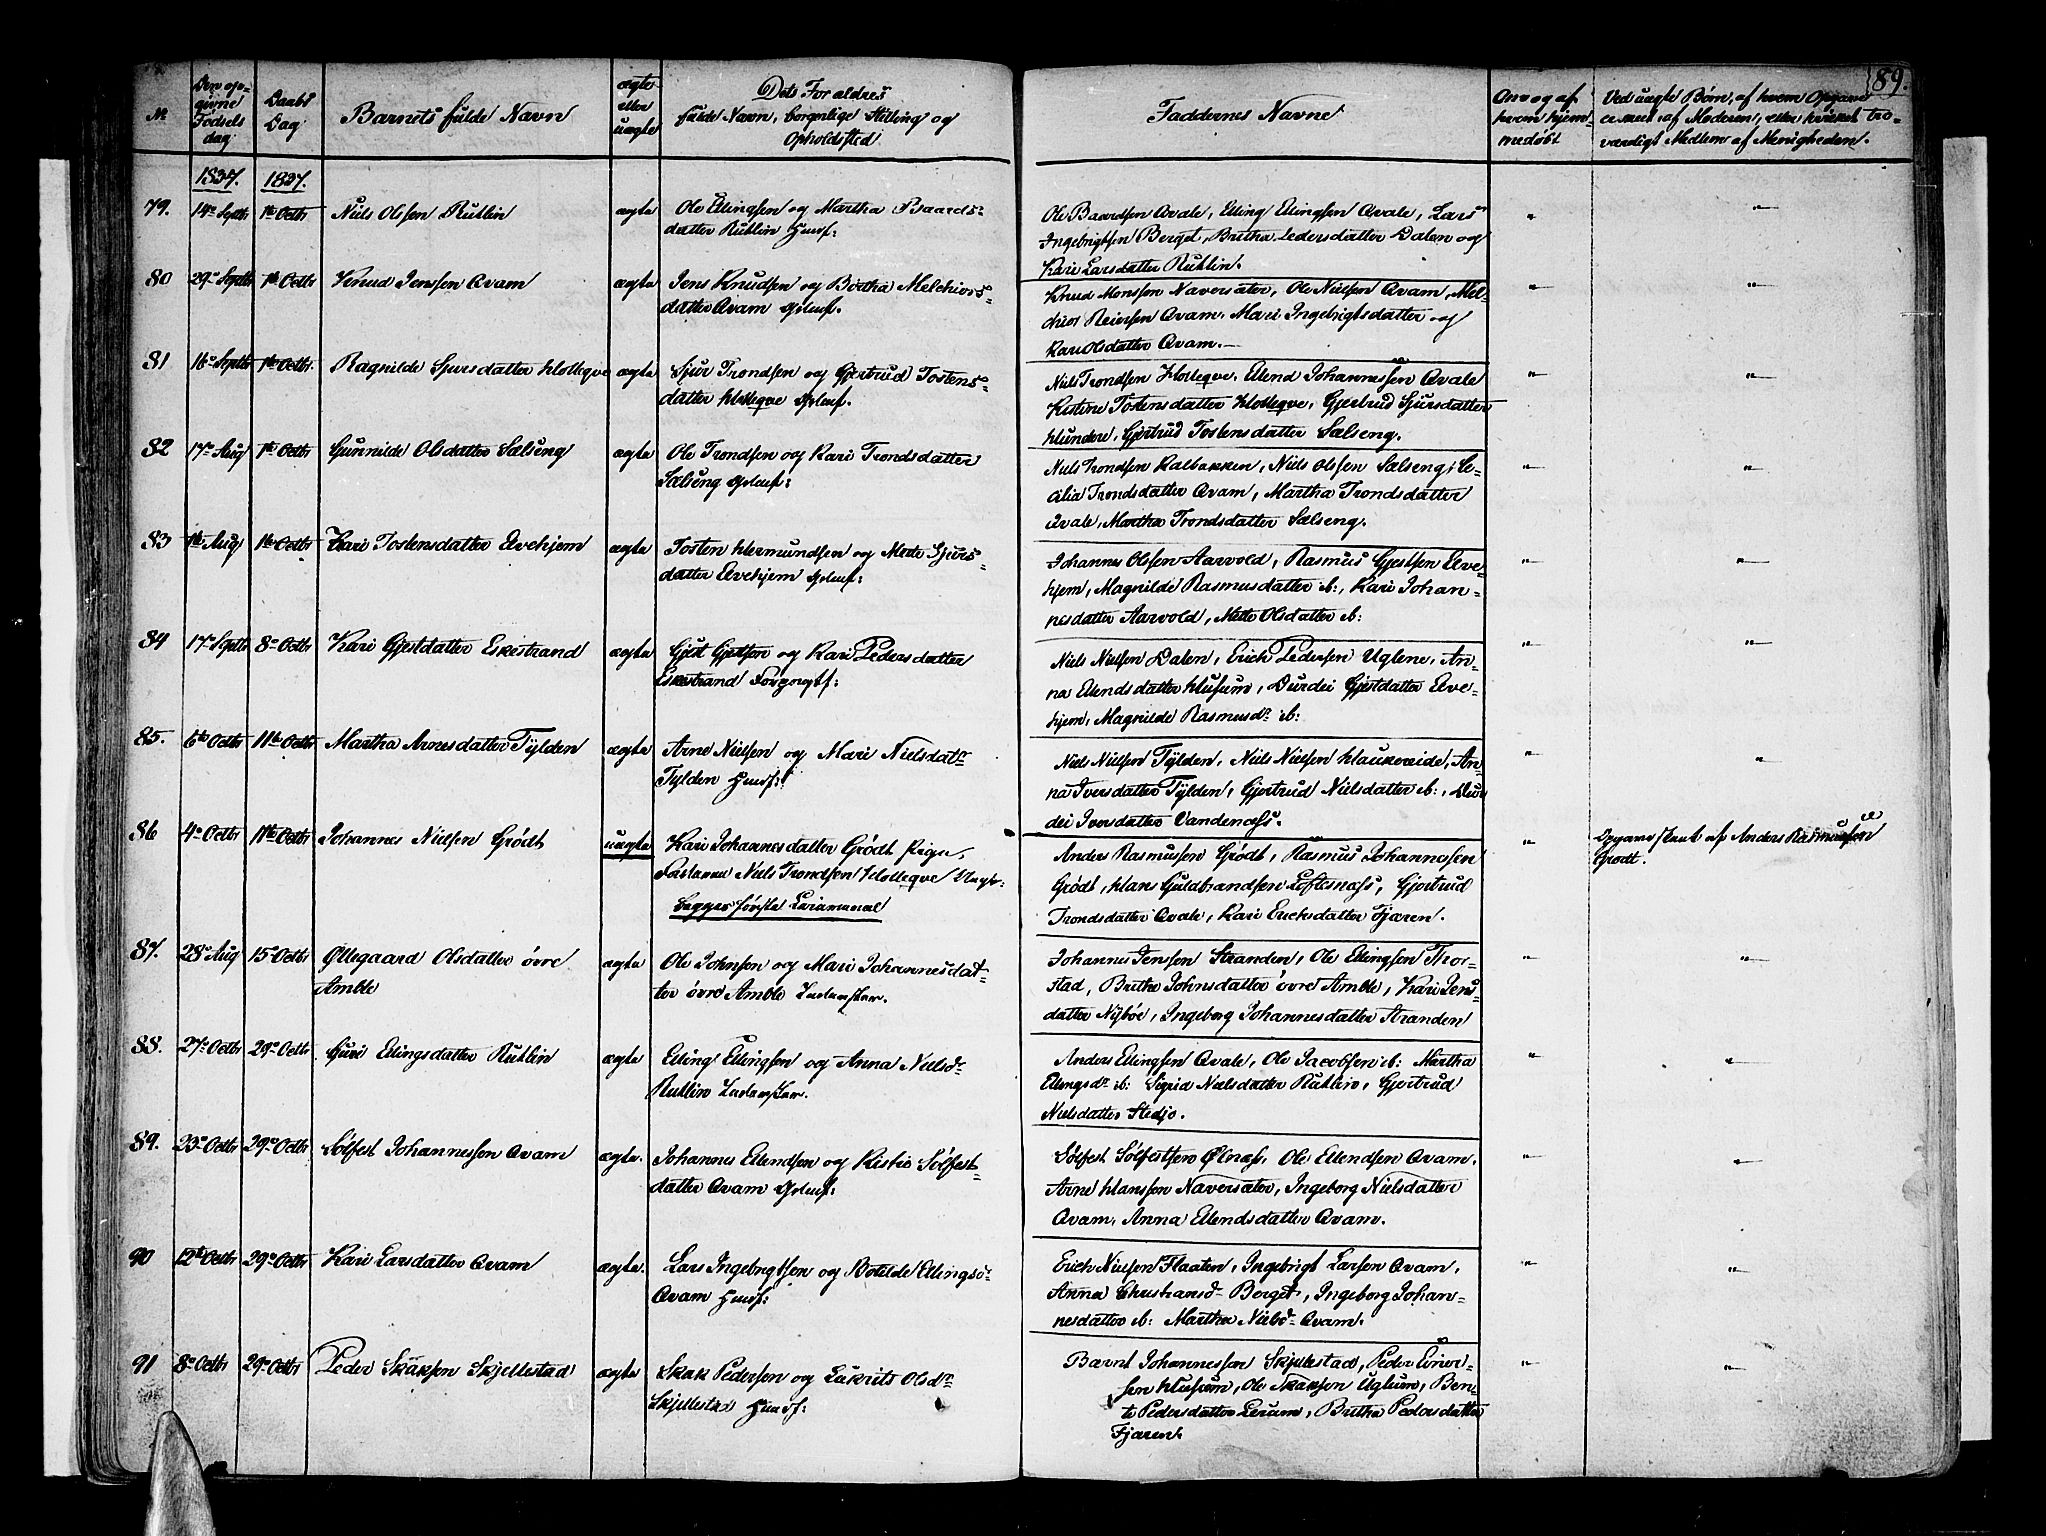 89.
№
Den op-
givne
Fødsels
dag
Daabs
Dag
Barnets fulde Navn
ægte
eller
uægte
Dets Forældres
fulde Navn, borgerlige Stilling og
Opholdsted
Faddernes Navne
Om og af
hvem hjem-
medøbt
Ved uægte Børn, af hvem Opgave
er skeet af Moderen, eller hvilket tro-
værdigt Medlem af Menigheden.
1837. 1837.
79. 14de Septbr 1te Octbr Niels Olsen Rutlin ægte Ole Ellingsen og Martha Baards-
datter Rutlin Huusf:
Ole Baardsen Qvale, Elling Ellingsen Qvale, Lars
Ingebrigtsen Berget, Britha Pedersdatter Dalen og
Kari Larsdatter Rutlin.
80 29de Septbr 1te Octbr Knud Jenssen Qvam ægte Jens Knudsen og Botha Melchiors-
datter Qvam
Knud Monssen Naversæter, Ole Nielsen Qvam, Mel-
chior Reiersen Qvam, Mari Ingebrigtsdatter og
Kari Olsdatter Qvam.
81 16de Septbr 1te Octbr. Ragnilde Sjursdatter Holleqve ægte Sjur Trondsen og Gjertrud Tostens-
datter Holleqve
Niels Trondsen Holleqve, Ellend Johannessen Qvale
Kistine Tostensdatter Holleqve, Gjertrud Sjursdatter
Hundere, Gjertrud Tostensdatter Sælseng.
82 17de Aug 1te Octbr Gunnilde Olsdatter Sælseng ægte Ole Trondsen og Kari Trondsdatter
Sælseng
Niels Trondsen Kalbakken, Niels Olsen Sælseng, Ce-
cilia Trondsdatter Qvam, Martha Trondsdatter
Qvale, Martha Trondsdatter Sælseng.
83 1te Aug 1te Octbr Kari Tostensdatter Elvehjem ægte Tosten Hermundsen og Mete Sjurs-
datter Elvehjem
Johannes Olsen Aarvold, Rasmus Gjestsen Elve-
hjem, Magnilde Rasmusdatter ib:, Kari Johan-
nesdatter Aarvold, Mette Olsdatter ib:
84 17de Septbr 8de Octbr Kari Gjestdatter Eskestrand ægte Gjest Gjestsen og Kari Pedersdatter
Eskestrand
Niels Nielsen Dalen, Erich Pedersen Uglene, An-
na Ellendsdatter Husum, Durdei Gjestdatter Elve-
hjem, Magnilde Rasmusdr ib:
85. 6te Octbr 11te Octbr Martha Arnesdatter Tylden ægte Arne Nielsen og Mari Nielsdatr
Tylden Huusf:
Niels Nielsen Tylden, Niels Nielsen Haukereide, An-
na Iversdatter Tylden, Gjertrud Nielsdatter ib:, Dur
dei Iversdatter Vandenæss.
86 4de Octbr 11te Octbr Johannes Nielsen Grødt uægte Kari Johannesdatter Grødt Pige,
Niels Trondsen Holleqve Ungkr:
Begges første Leiermaal
Anders Rasmussen Grødt, Rasmus Johannessen
Grødt, Hans Guldbrandsen Loftesness, Gjertrud
Trondsdatter Qvale, Kari Erichsdatter Fjæren.
Opgaven skeet af Anders Rasmussen
Grødt.
87. 28de Aug 15de Octbr Øllegaard Olsdatter øvre
Amble ægte Ole Johnsen og Mari Johannesdat-
ter øvre Amble
Johannes Jenssen Stranden, Ole Ellingsen Thor-
stad, Britha Johnsdatter øvre Amble, Kari Jens-
datter Nybøe, Ingeborg Johannesdatter Stranden
88. 27de Octbr 29de Octbr Guri Ellingsdatter Rutlin ægte Elling Ellingsen og Anna Nielsdr
Rutlin
Anders Ellingsen Qvale, Ole Jacobsen ib: Martha
Ellingsdr ib: Sigrid Nielsdatter Rutlin, Gjertrud
Nielsdatter Stedjo.
89. 23de Octbr 29de Octbr Sølfest Johannessen Qvam ægte. Johannes Ellendsen og Kistie Sølfest-
datter Qvam
Sølfest Sølfestsen Ølnæss, Ole Ellendsen Qvam,
Arne Hanssen Naversæter, Ingeborg Nielsdatter
Qvam, Anna Ellendsdatter Qvam.
90 12te Octbr 29de Octbr Kari Larsdatter Qvam ægte. Lars Ingebrigtsen og Botilde Ellingsdr
Qvam Huusf:
Erich Nielsen Flaaten, Ingebrigt Larsen Qvam,
Anna Christiansdr Berget, Ingeborg Johan-
nesdatter ib: Martha Nielsdr Qvam.
91 8de Octbr 29de Octbr Peder Skaksen Skjellestad ægte Skak Pedersen og Lukrits Olsdr
Skjellestad Huusf:
Bærnt Johannessen Skjellestad, Peder Einer-
sen Husum, Ole Skaksen Uglum, Ben-
te Pedersdatter Lerum, Britha Pedersdatter
Fjæren.